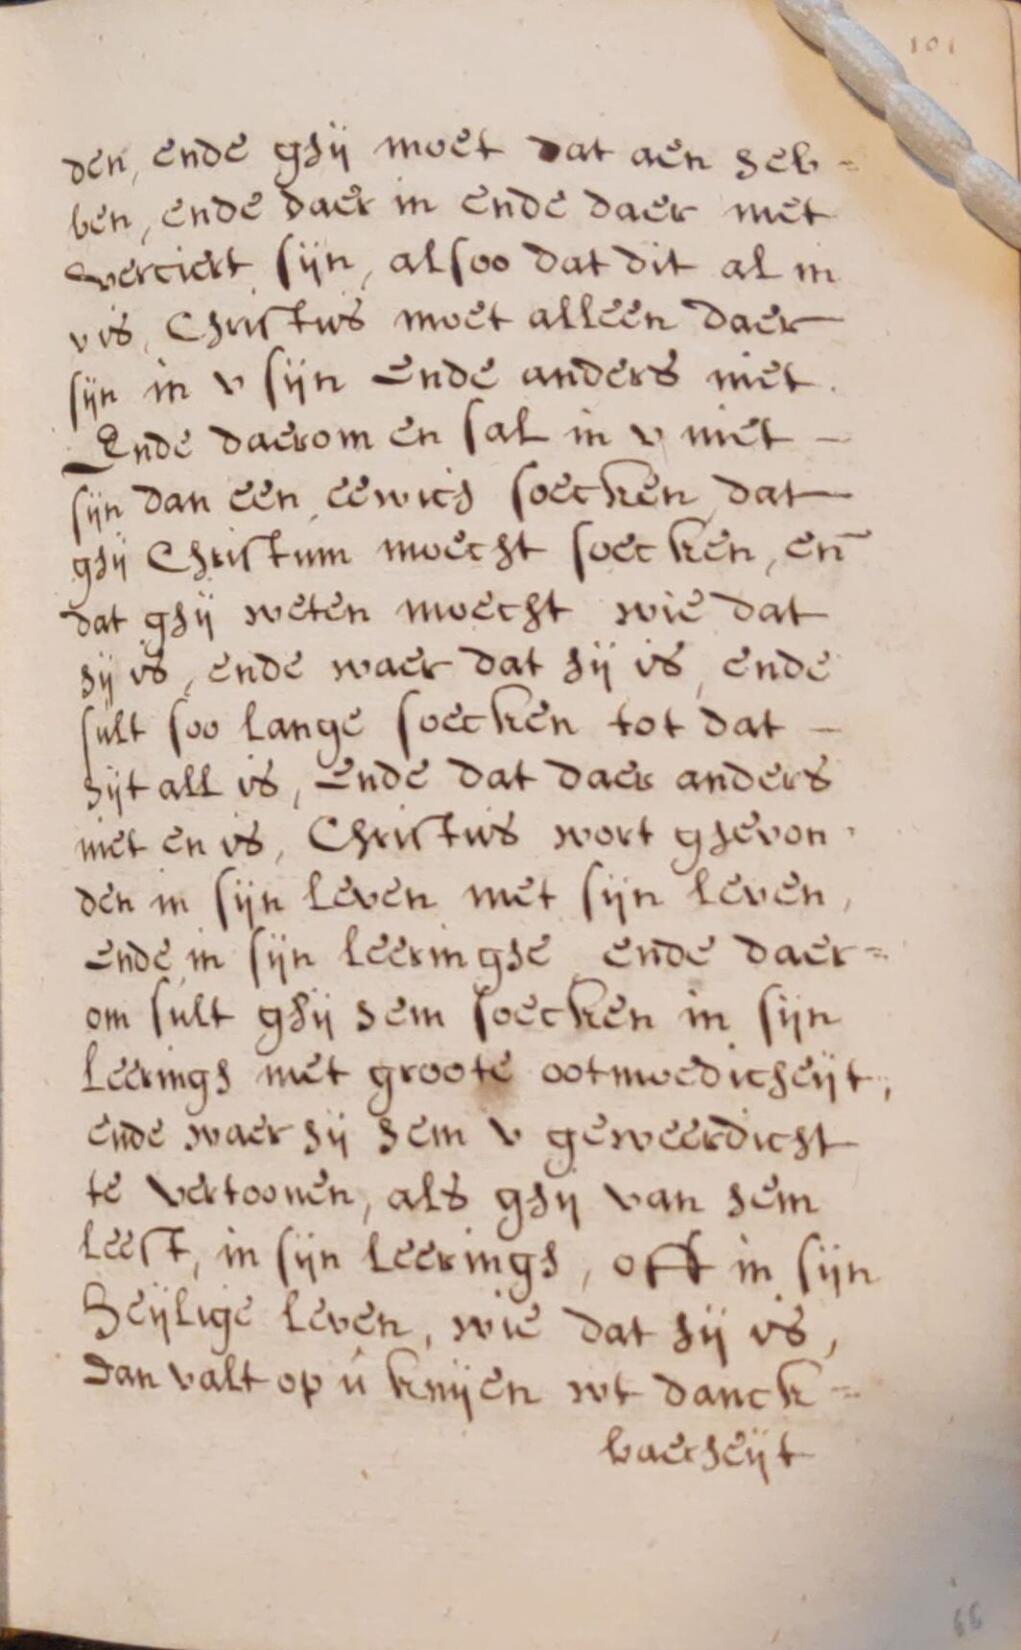 101
den, ende ghij moet dat aen heb=
ben, ende daer in ende daer met
verciert sijn, alsoo dat dit al in
v is, Christus moet alleen daer
sijn in v sijn ende anders niet.
Ende daerom en sal in v niet –
sijn dan een eewich soecken, dat
ghij Christum moecht soecken, en̄
dat ghij weten moecht wie dat
hij is, ende waer dat hij is, ende
sult soo lange soecken tot dat –
hijt all is, ende dat daer anders
niet en is, Christus wort ghevon-
den in sijn leven met sijn leven,
ende in sijn leeringhe ende daer=
om sult ghij hem soecken in sijn
leeringh met groote ootmoedicheijt,
ende waer hij hem v geweerdicht
te vertoonen, als ghij van hem
leest, in sijn leeringh, oft in sijn
heijlige leven, wie dat hij is,
dan valt op ú knijen wt danck=
baerheijt
66